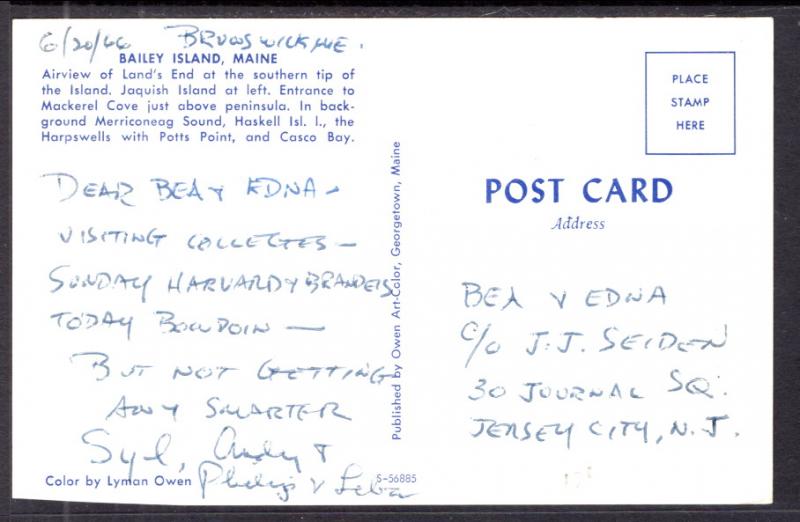 6/20/66 BRUNSWICK ME.
BAILEY ISLAND, MAINE
Airview of Land's End at the southern tip of
the Island. Jaquish Island at left. Entrance to
Mackerel Cove just above peninsula. In back-
ground Merriconeag Sound, Haskell Isl. I., the
Harpswells with Potts Point, and Casco Bay.
DEAR BEA & EDNA -
VISITING COLLEGES -
SUNDAY HARVARD & BRANDEIS
TODAY BOWDOIN -
BUT NOT GETTING
ANY SMARTER
Syl, Andy &
Philip & Leba
Color by Lyman Owen
S-56885
Published by Owen Art-Color, Georgetown, Maine
PLACE
STAMP
HERE
POST CARD
Address
BEA & EDNA
C/O J.J. SEIDEN
30 JOURNAL SQ.
JERSEY CITY, N.J.